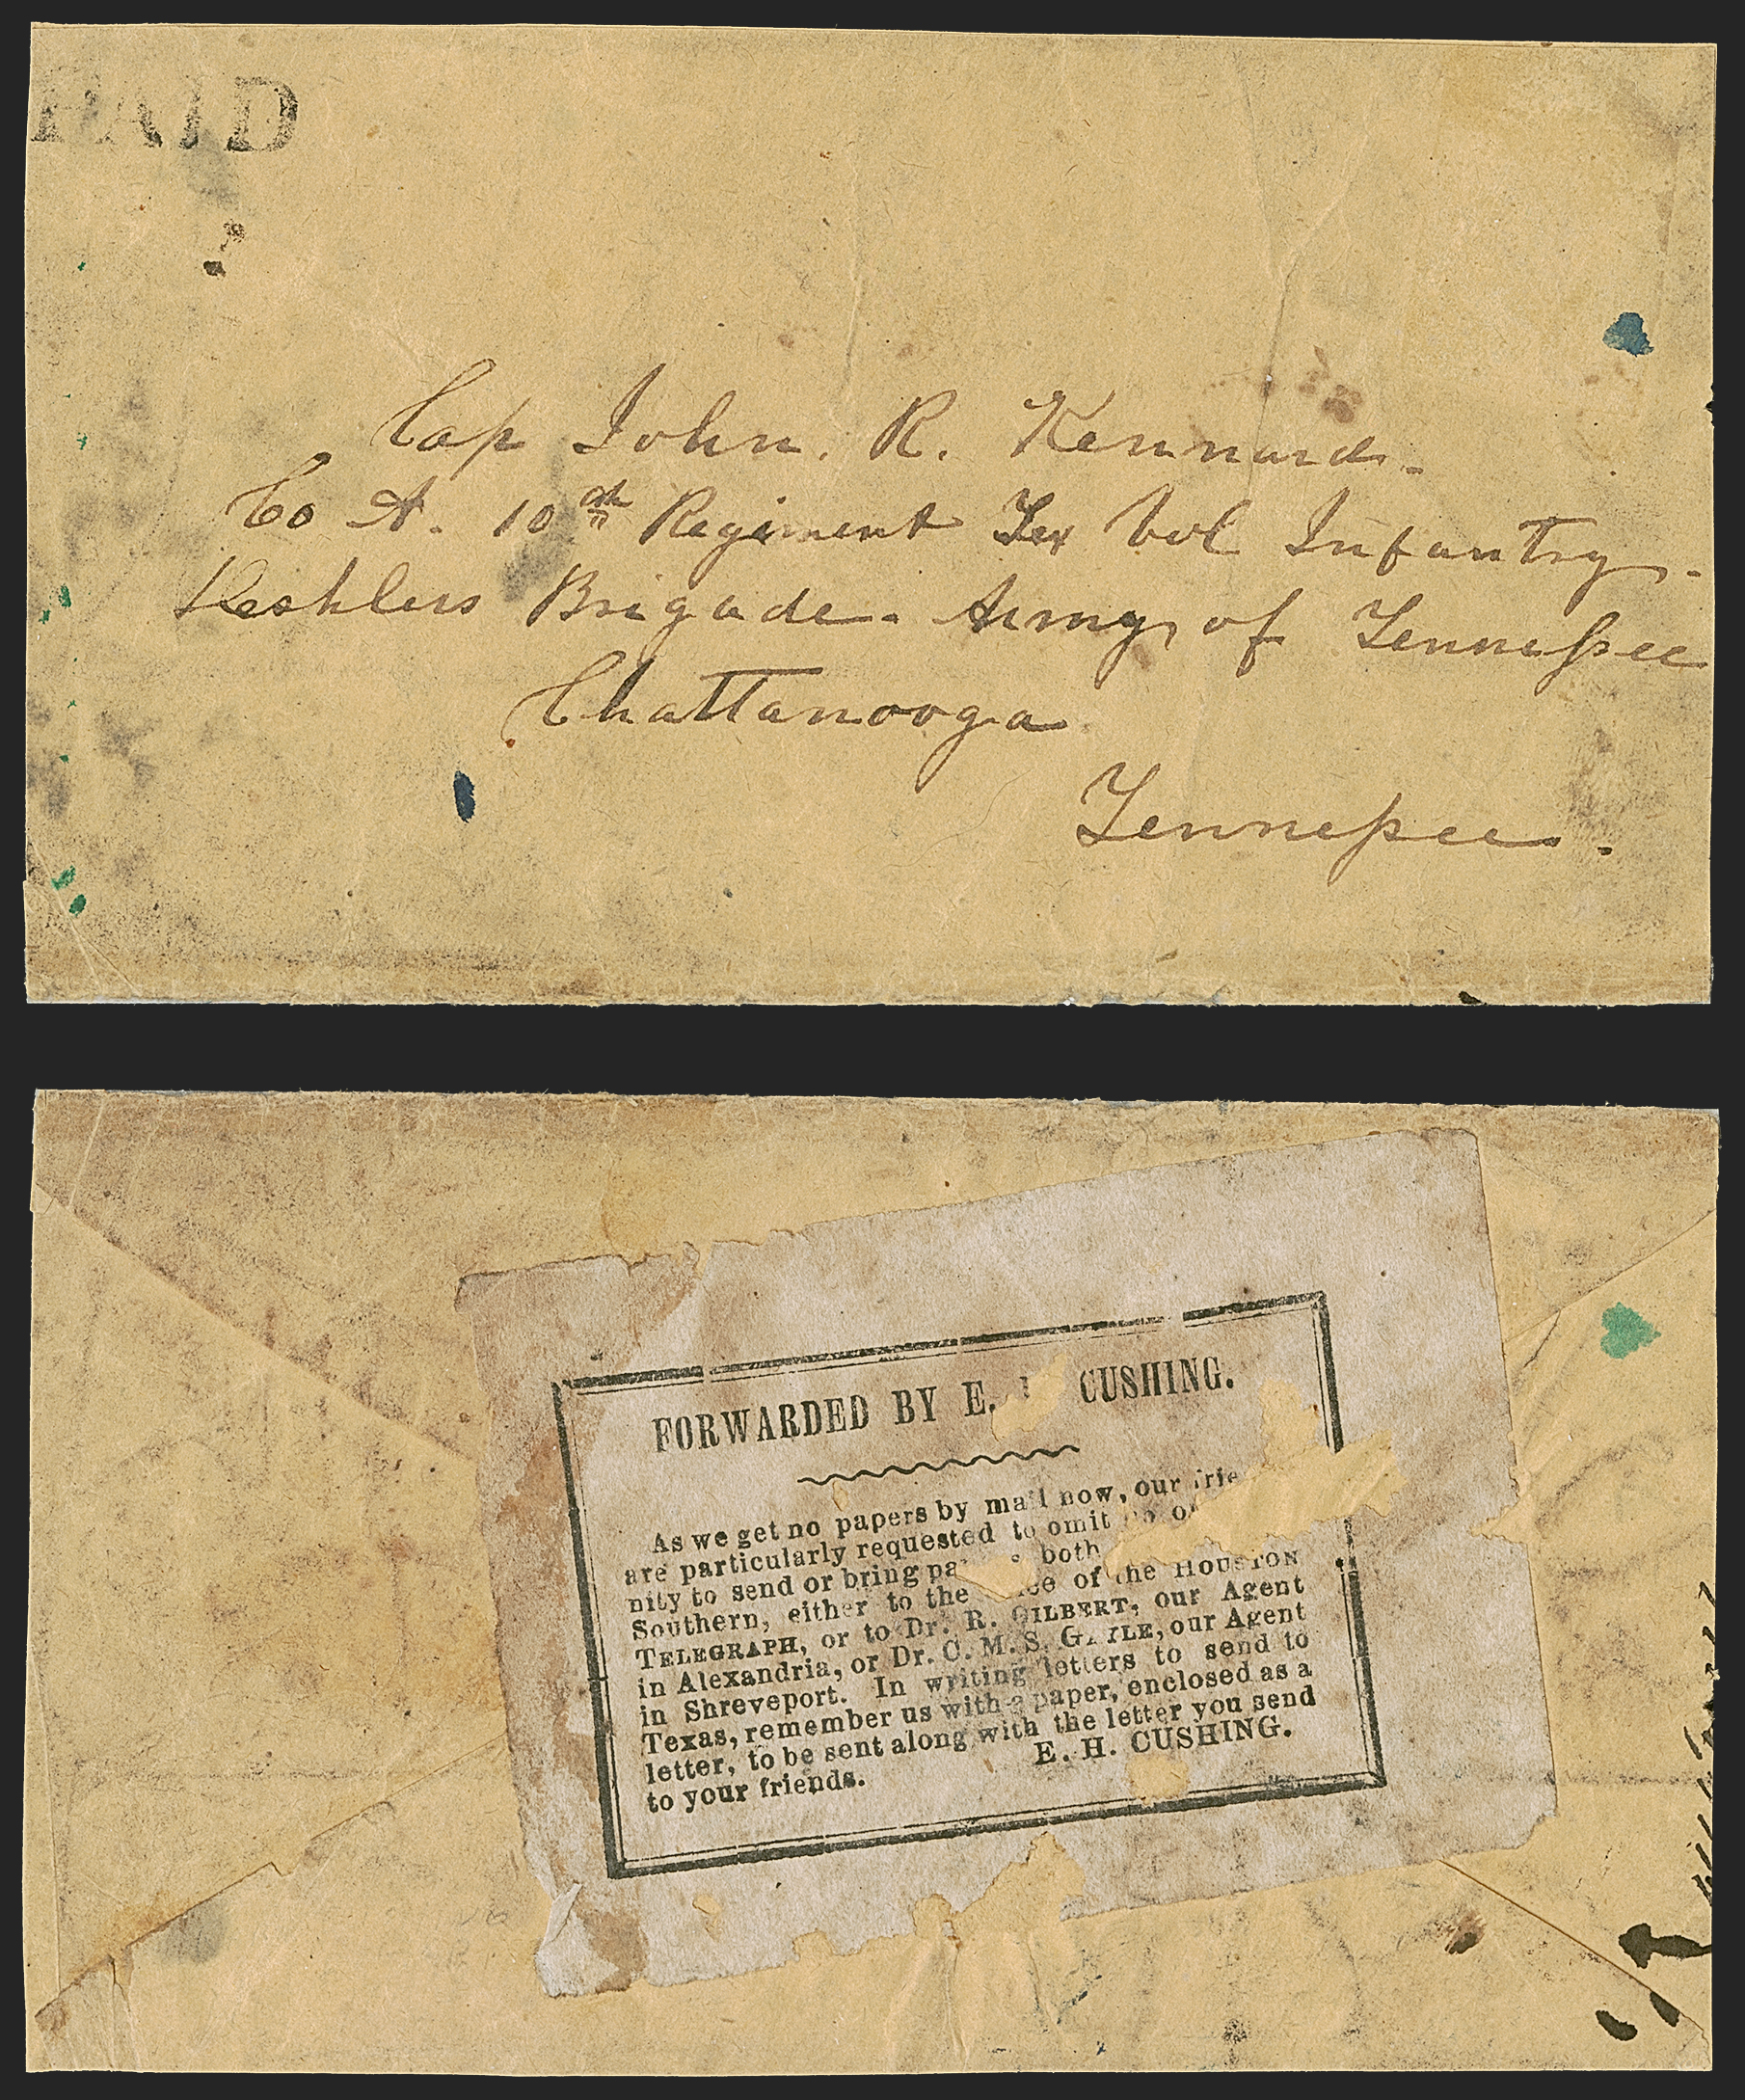 PAID
Cap John. R. Kennard.
Co A. 10th Regiment Tex Vol Infantry.
Deshlers Brigade. Army of Tennessee
Chattanooga
Tennessee.
FORWARDED BY E. CUSHING.
As we get no papers by mail now, our
are particularly requested to omit no
nity to send or bring both
Southern, either to the of the HOUSTON
TELEGRAPH, or to Dr. R. GILBERT, our Agent
in Alexandria, or Dr. C. M. S. GAYLE, our Agent
in Shreveport. In writing letters to send to
Texas, remember us with a paper, enclosed as a
letter, to be sent along with the letter you send
to your friends.
E. H. CUSHING.